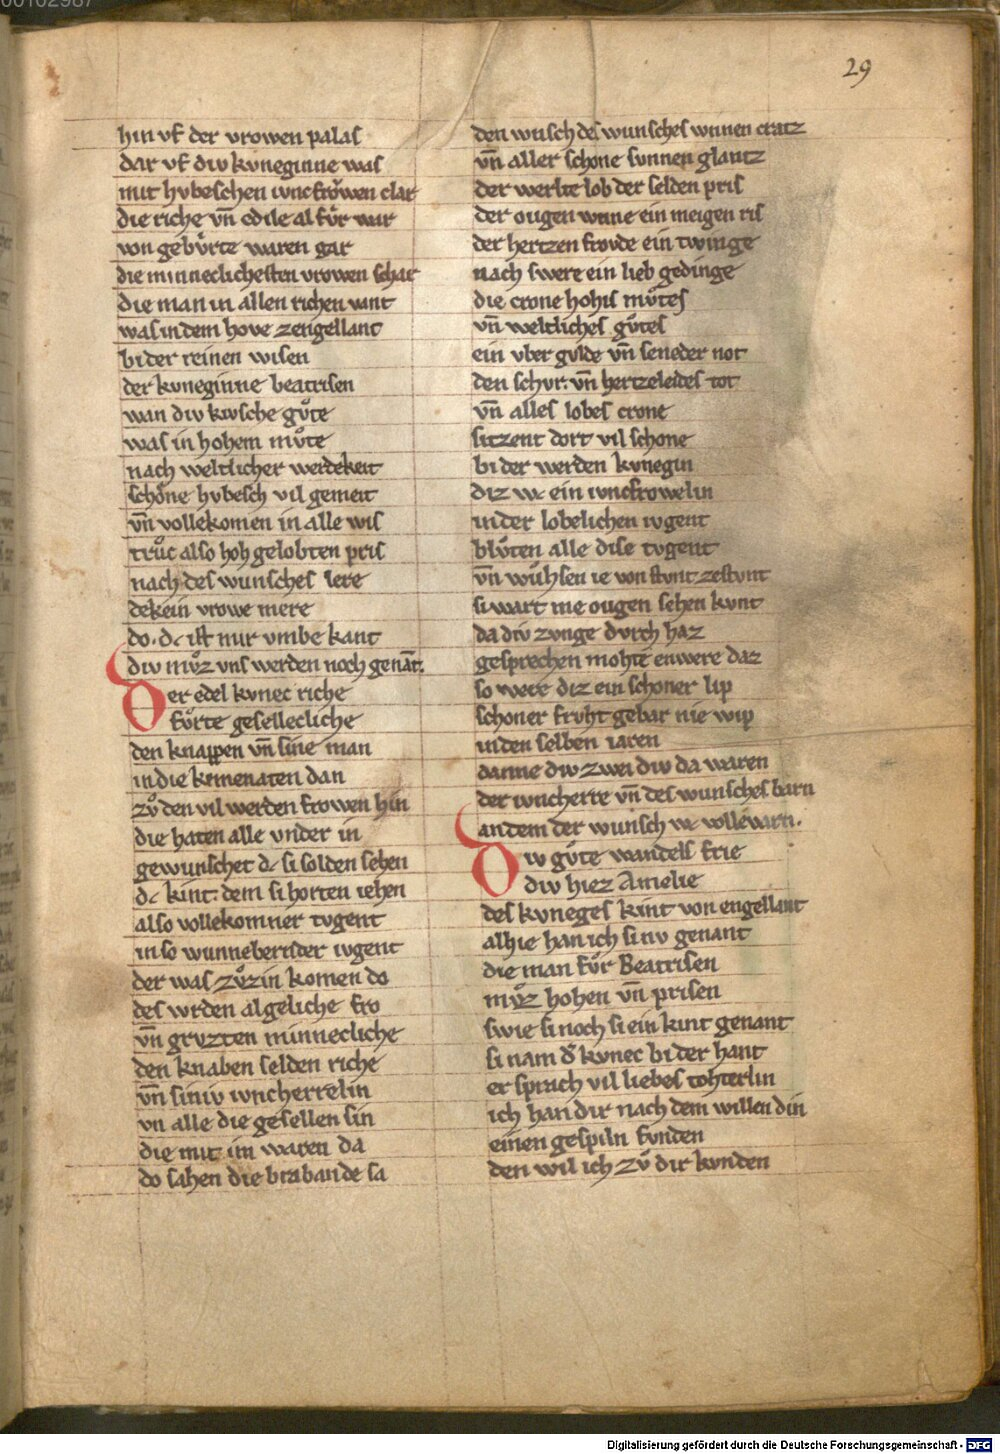 00102987
29
hin vf der vrowen palas
dar vf div kvneginne was
mit hvbeschen ivncfrǒwen clar
die riche vn̄ edile al fv̊r war
von gebv̊rte waren gar
die minneclichesten vrowen schar
die man in allen richen vant
was in dem hove zengellant
bi der reinen wisen
der kvneginne beatrisen
wan div kivsche gv̊te
was in hohem mv̊te
nach weltlicher werdekeit
schǒne hvbesch vil gemeit
vn̄ vollekomen in alle wis
trv̊c also hoh gelobten pris
nach des wunsches lere
dekein vrowe mere
do. dc ist mir vmbe kant
div mv̊z vns werden noch genāt.
Der edel kvnec riche
fv̊rte gesellecliche
den knappen vn̄ sine man
in die kemenaten dan
zv̊ den vil werden frowen hin
die haten alle vnder in
gewunschet dc si solden sehen
dc kint. dem si horten iehen
also vollekomner tvgent
in so wunnebernder ivgent
der was zv̊zin komen do
des wrden algeliche fro
vn̄ grvzten minnecliche
den knaben selden riche
vn̄ siniv ivncherrelin
vn alle die gesellen sin
die mit im waren da
do sahen die brabande sa
den wusch des wunsches winnen cratz
vn̄ aller schone svnnen glantz
der werlte lob der selden pris
der ougen wnne ein meigen ris
der hertzen frovde ein twinge
nach swere ein lieb gedinge
die crone hohis mv̊tes
vn̄ weltliches gv̊tes
ein vber gvlde vn̄ seneder not
den schvr vn̄ hertzeleides tot
vn̄ alles lobes crone
sitzent dort vil schone
bi der werden kvnegin
diz wc ein ivncfrowelin
in der lobelichen ivgent
blv̊ten alle dise tvgent
vn̄ wv̊hsen ie von stvnt ze stvnt
si wart nie ougen sehen kvnt
da div zvnge dvrch haz
gesprechen mohte enwere daz
so were diz ein schoner lip
schoner frvht gebar nie wip
in den selben iaren
danne div zwei div da waren
der ivncherre vn̄ des wunsches barn
an dem der wunsch wc vollevarn.
Div gv̊te wandels frie
div hiez Amelie
des kvneges kint von engellant
alhie han ich si nv genant
die man fv̊r Beatrisen
mv̊z hohen vn̄ prisen
swie si noch si ein kint genant
si nam d̓ kvnec bi der hant
er sprach vil liebes tohterlin
ich han dir nach dem willen din
einen gespiln fvnden
den wil ich zv̊ dir kvnden
Digitalisierung gefördert durch die Deutsche Forschungsgemeinschaft - DFG